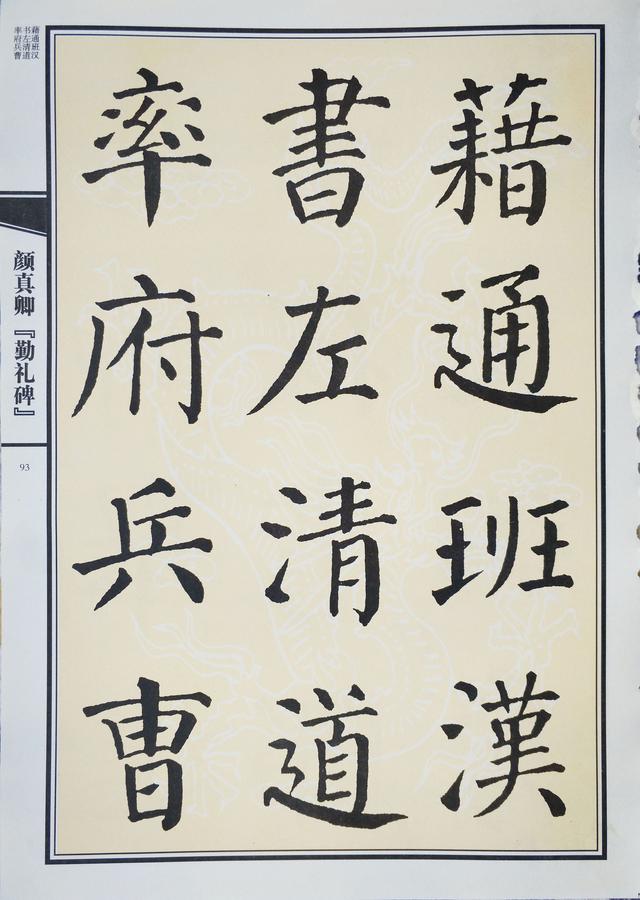 藉通班漢
書左清道
率府兵曹
藉通班汉
书左清道
率府兵曹
颜真卿『勤礼碑』
93